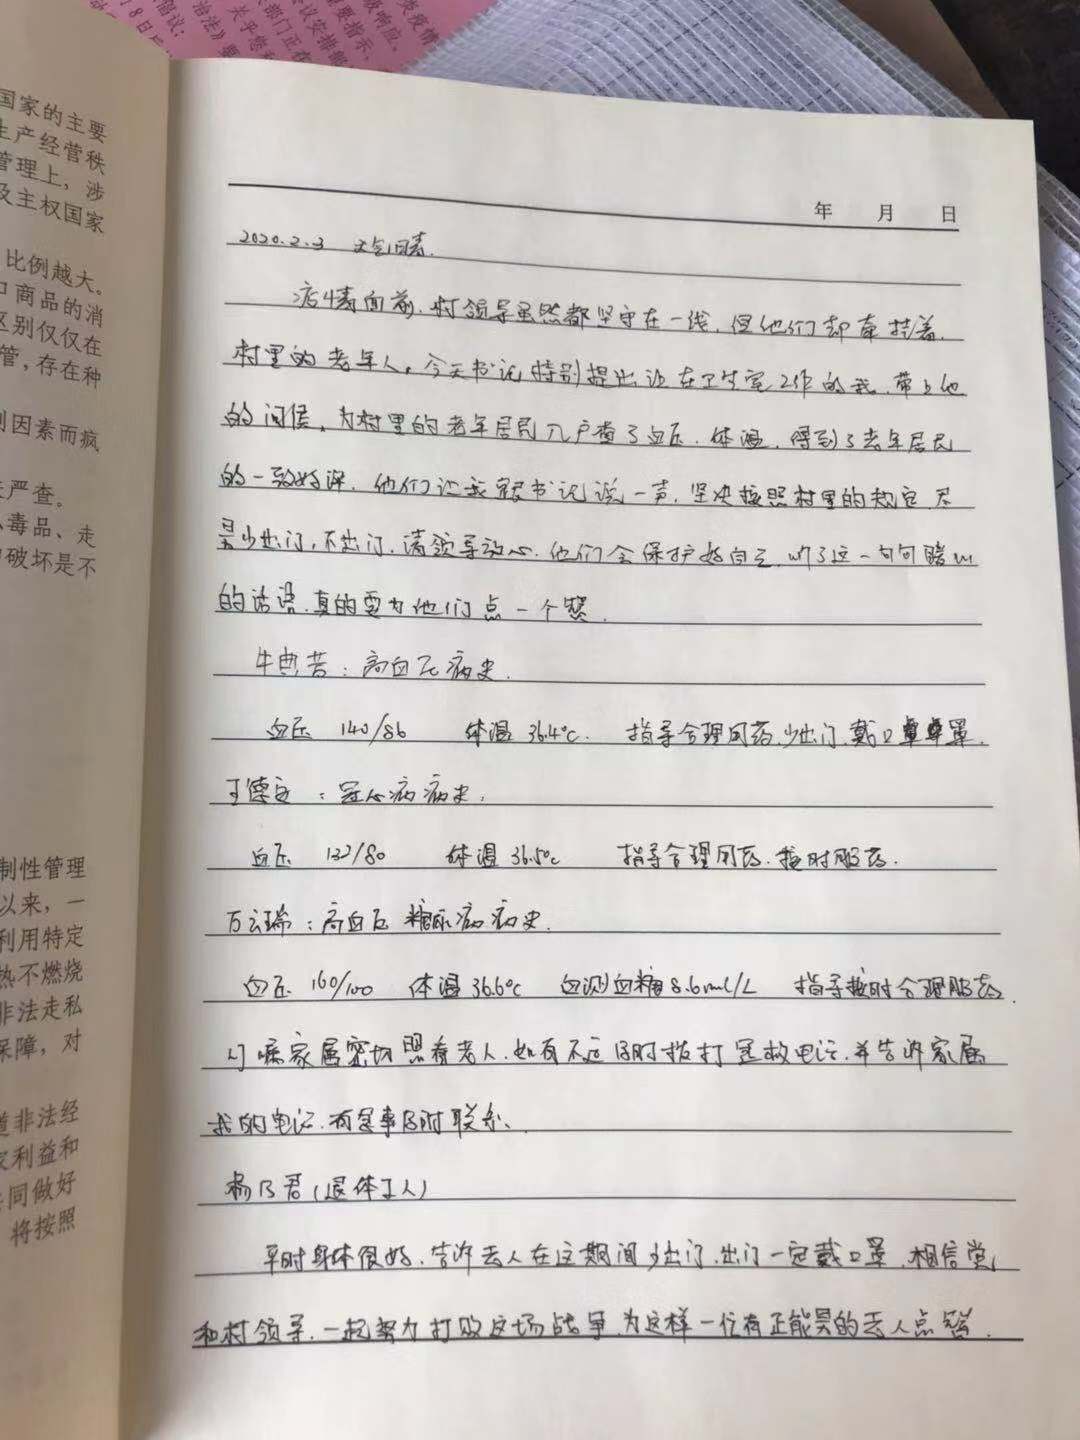 国家的主要
生产经营秩
管理上，涉
及主权国家
比例越大。
口商品的消
区别仅仅在
管，存在种
别因素而疯
严查。
毒品、走
破坏是不
制性管理
以来，一
利用特定
热不燃烧
非法走私
保障，对
道非法经
家利益和
共同做好
将按照
年 月 日
2020.2.3 天气晴.
疫情面前，村领导虽然都坚守在一线，但他们却牵挂着
村里的老年人。今天书记特别提出让在卫生室工作的我，带上他
的问候，为村里的老年居民入户查了血压、体温，得到了老年居民
的一致好评，他们让我跟书记说一声，坚决按照村里的规定，尽
量少出门，不出门，请领导放心，他们会保护好自己，听了这一句句暖心
的话语，真的要为他们点一个赞.
牛典苦：高血压病史.
血压 140/86 体温 36.4℃. 指导合理用药，少出门，戴口罩.
王德立：冠心病病史.
血压 132/80 体温 36.5℃ 指导合理用药，按时服药.
万云瑞：高血压 糖尿病病史.
血压 160/100 体温 36.6℃ 血测血糖 8.6ml/L 指导按时合理服药.
叮嘱家属密切照看老人，如有不适及时拨打急救电话，并告诉家属
我的电话，有急事及时联系.
杨乃君（退休工人）
平时身体很好，告诉老人在这期间少出门，出门一定戴口罩，相信党
和村领导，一起努力打败这场战争，为这样一位有正能量的老人点赞.